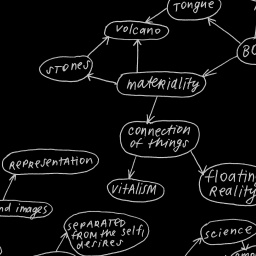 Tongue
volcano
STONES
materiality
connection
of things
REPRESENTATION
VITALISM
floating
REALITY
nd images
SEPARATED
FROM THE SELF,
DESIRES
science